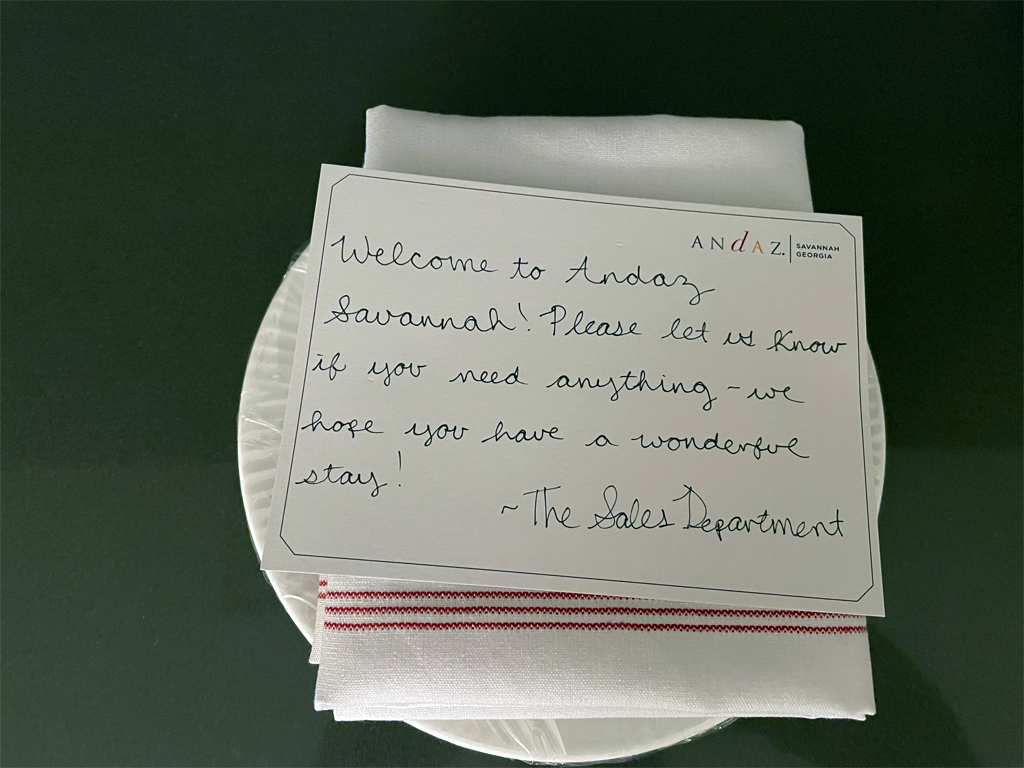 ANdAZ. SAVANNAH
GEORGIA
Welcome to Andaz
Savannah! Please let us know
if you need anything - we
hope you have a wonderful
stay!
~ The Sales Department